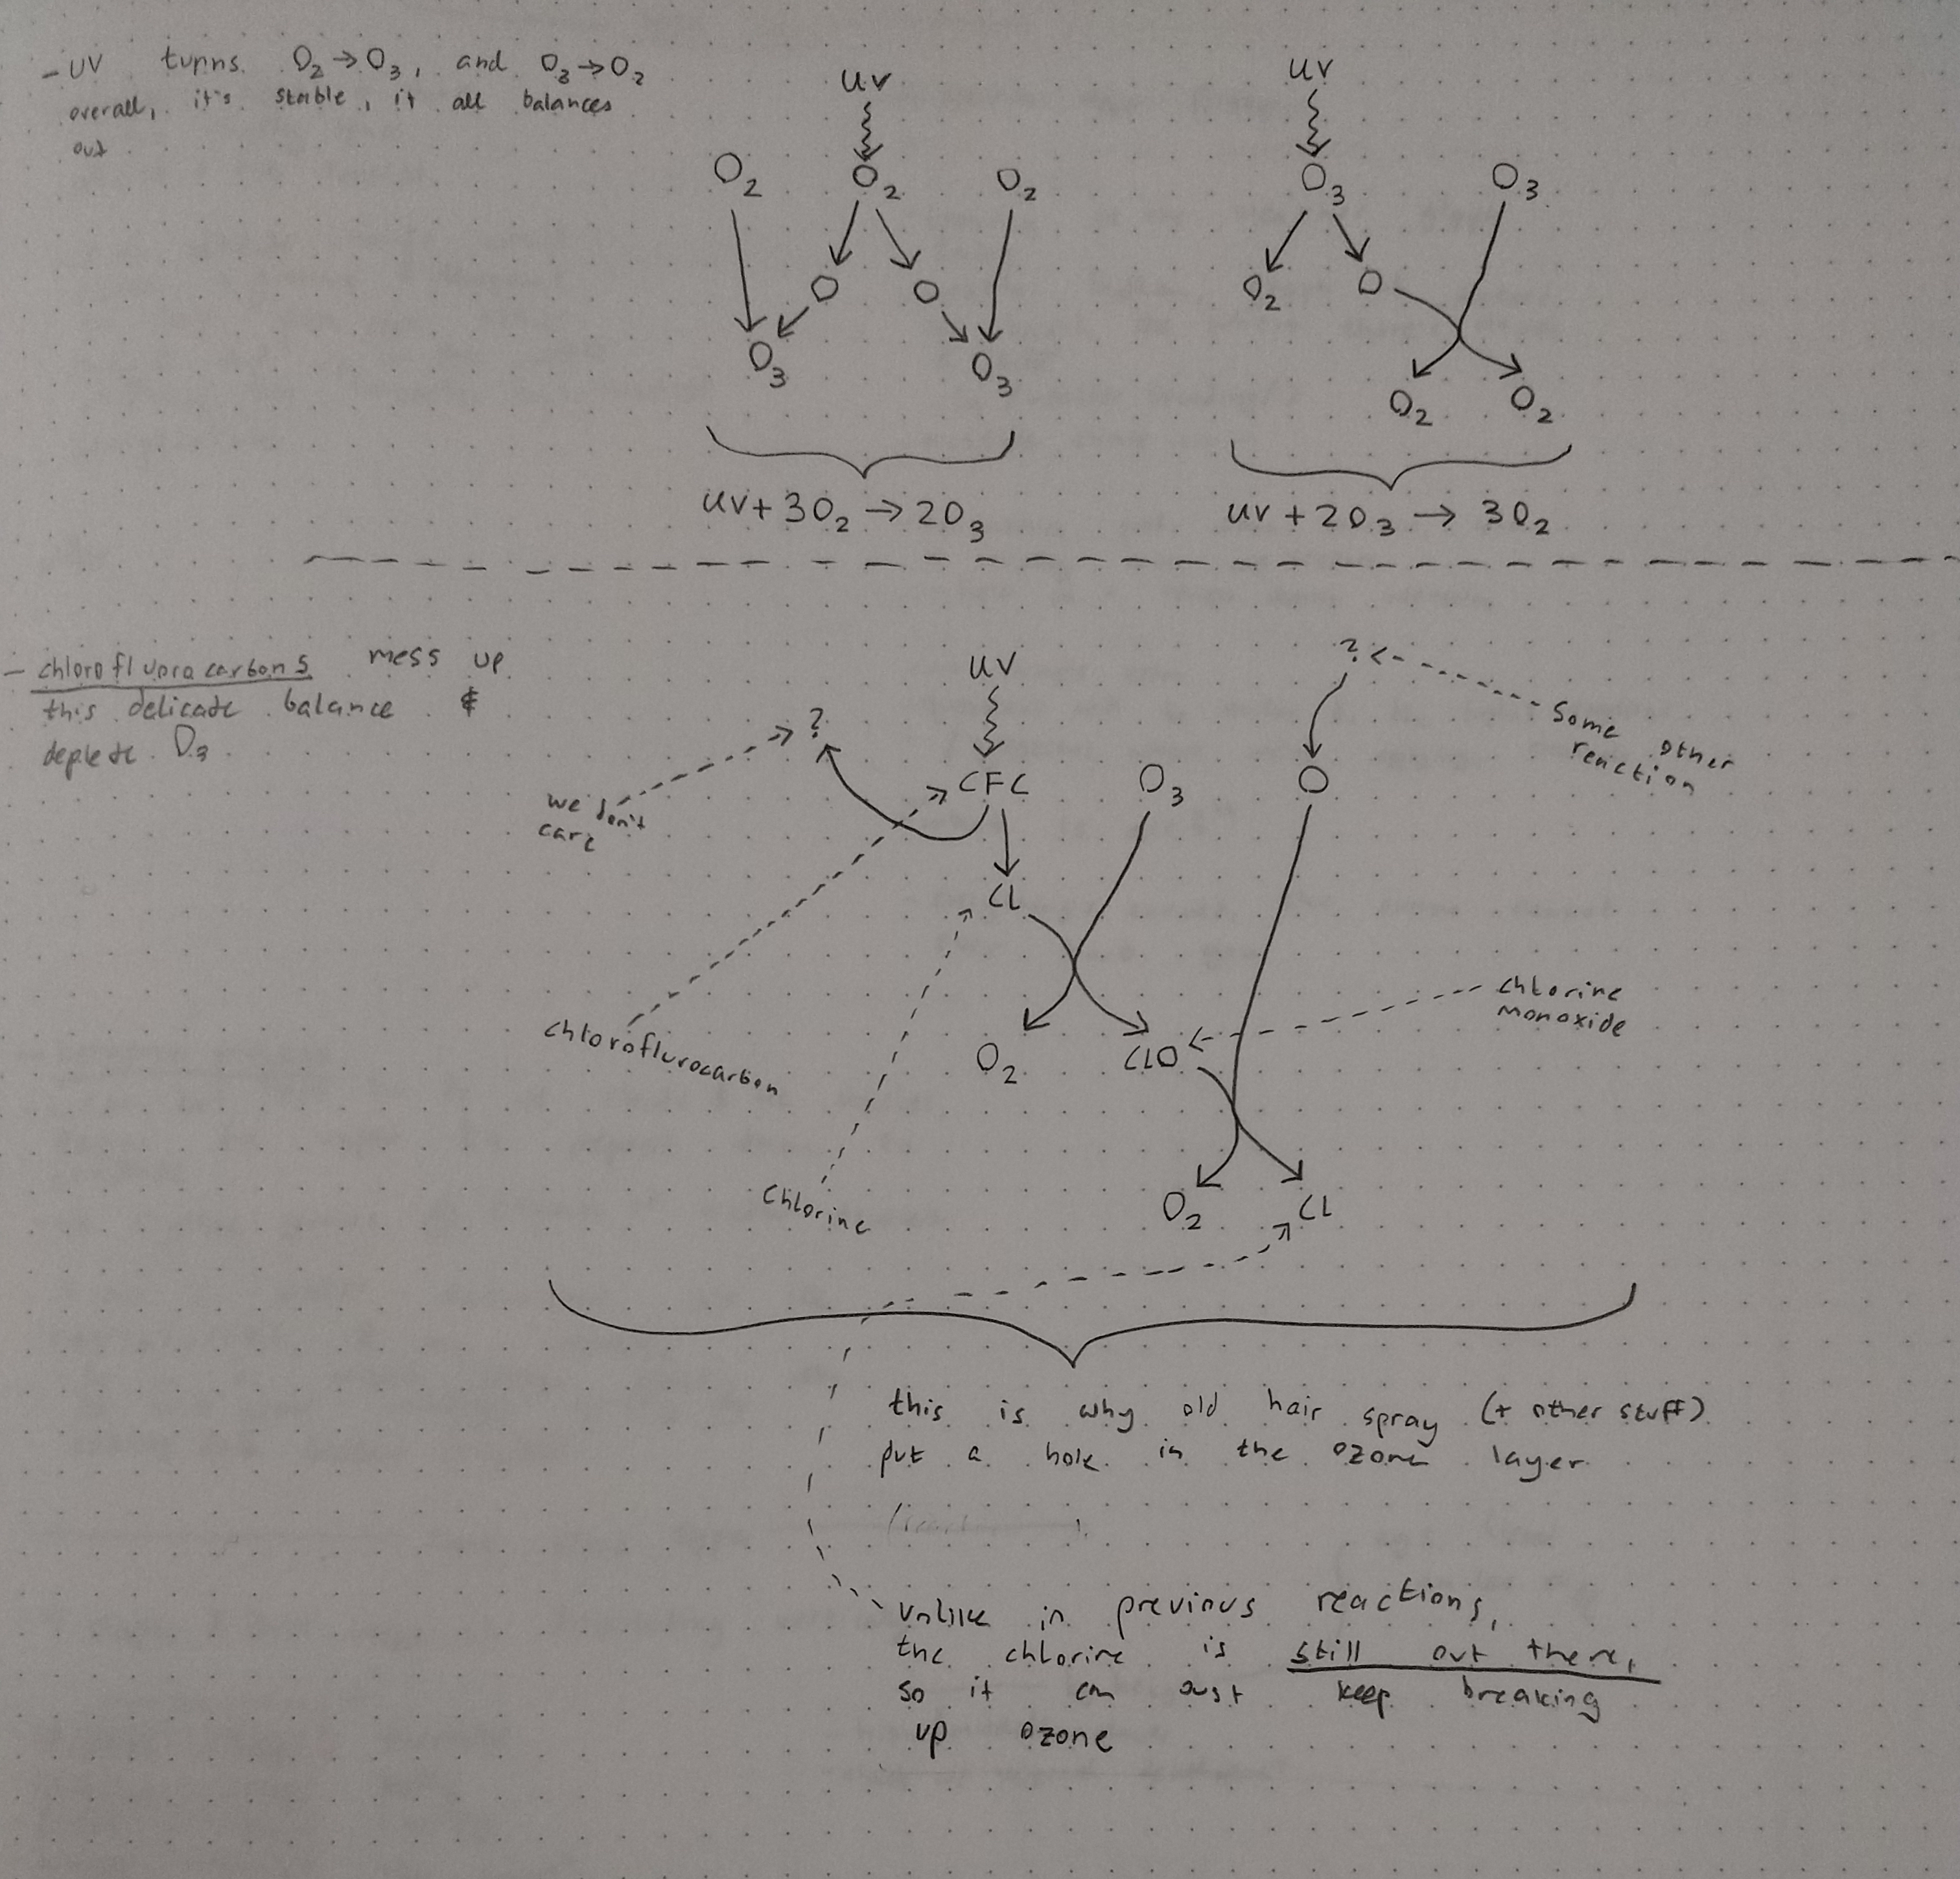 - UV turns O2 → O3, and O3 → O2
overall, it's stable, it all balances
out
UV
O2 O2 O2
O O
O3 O3
UV + 3O2 → 2O3
UV
O3 O3
O2 O
O2 O2
UV + 2O3 → 3O2
- chlorofluorocarbons mess up
this delicate balance &
deplete O3
UV
?
?
some other
reaction
we don't
care
CFC O3 O
Cl
chlorofluorocarbon
chlorine
monoxide
O2 ClO
Chlorine
O2 Cl
this is why old hair spray (+ other stuff)
put a hole in the ozone layer
unlike in previous reactions,
the chlorine is still out there,
so it can just keep breaking
up ozone